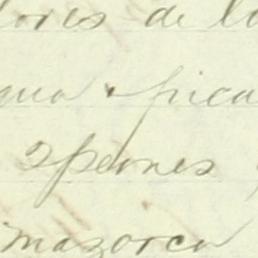 dores de lo
gua + pica
2 peones
mazorca